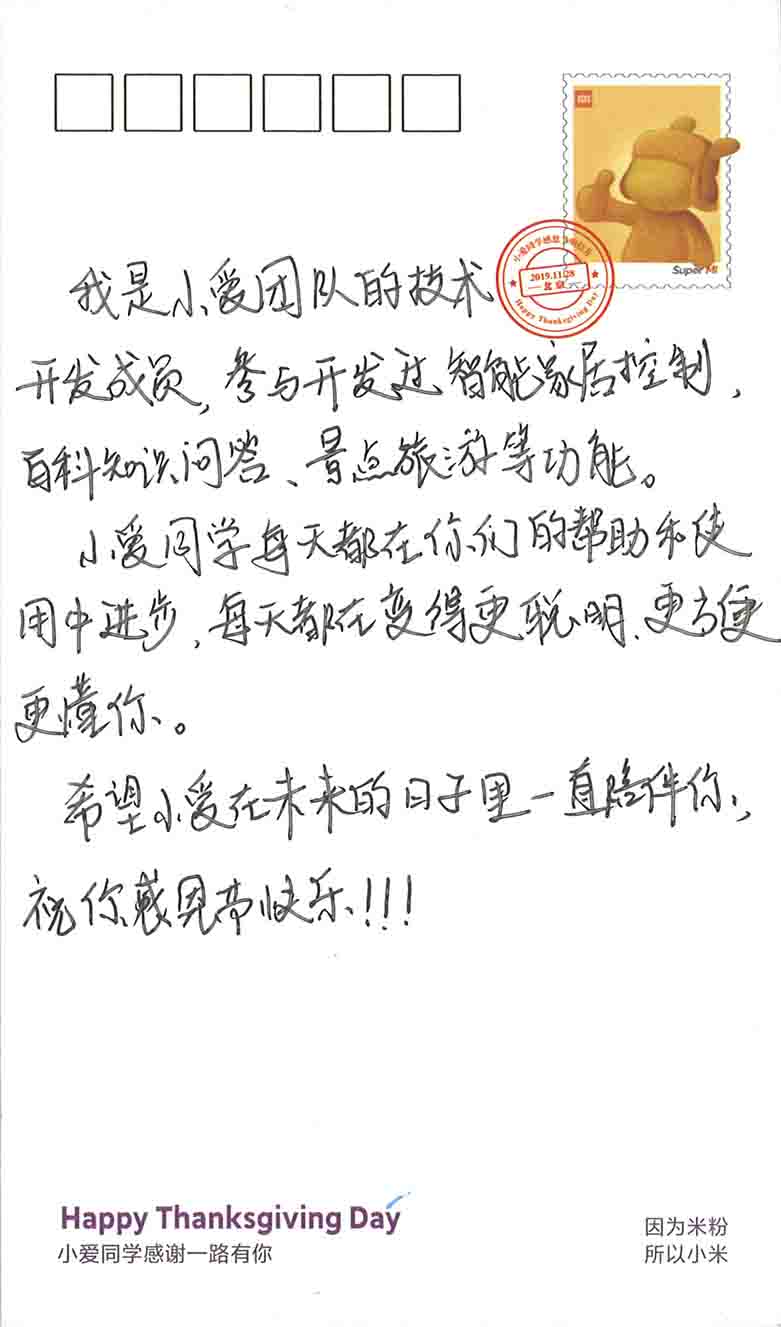 Super MI
小爱同学感恩
2019.11.28
北京
Happy Thanksgiving Day
我是小爱团队的技术
开发成员,参与开发过智能家居控制,
百科知识问答、景点旅游等功能。
小爱同学每天都在你们的帮助和使
用中进步,每天都在变得更聪明、更方便
更懂你。
希望小爱在未来的日子里一直陪伴你,
祝你感恩节快乐!!!
Happy Thanksgiving Day
小爱同学感谢一路有你
因为米粉
所以小米